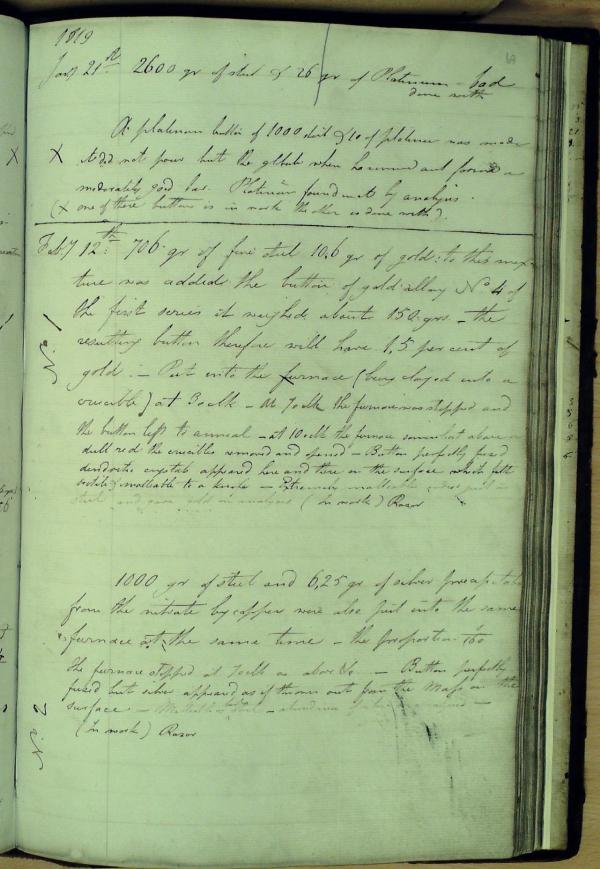 1819
Jany 21st 2600 gr of steel & 26 gr of Platinum - bad
done with
A platinum button of 1000 steel & 10 of platina was made
X it did not pour but the globule when hammered out formed a
moderately good bar. Platinum found in it by analysis.
(X one of these buttons is in work the other is done with).
Feby 12th: 706 gr of fine steel 10,6 gr of gold: to this mix-
ture was added the button of gold alloy No 4 of
the first series it weighed about 150 grs - the
resulting button therefore will have 1,5 per cent of
gold. - Put into the furnace (being closed into a
crucible) at 3 oclk - At 7 oclk the furnace was stopped and
the button left to anneal - at 10 oclk the furnace somewhat above a
dull red the crucibles removed and opened - Button perfectly fused
dendritic crystals appeared here and there on the surface which felt
malleable to a - Extremely malleable
steel and gave gold in analysis (In work) Razor
No 1
1000 gr of steel and 6,25 gr of silver precipitated
from the nitrate by copper were also put into the same
furnace at the same time - the proportion 1/160
the furnace stopped at 7 oclk as above &c. - Button perfectly
fused but silver appeared as if thrown out from the Mass on the
surface -
No 2
(In work) Razor